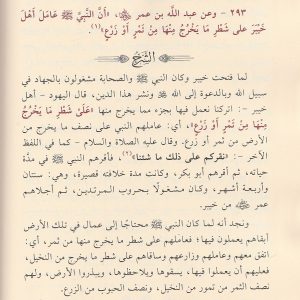 ٢٩٣ - وعن عبد الله بن عمر ﵄، «أنَّ النَّبِيَّ ﷺ عَامَلَ أَهْلَ
خَيْبَرَ على شَطْرِ مَا يَخْرُجُ مِنْهَا مِنْ تَمْرٍ أَوْ زَرْعٍ»(١).
الشَّرْحُ
لما فتحت خيبر وكان النبي ﷺ والصحابة مشغولون بالجهاد في
سبيل الله وبالدعوة إلى الله ونشر هذا الدين، قال اليهود - أهل
خيبر -: اتركنا نعمل فيها بجزء مما يخرج منها «عَلَىٰ شَطْرِ مَا يَخْرُجُ
مِنْهَا مِنْ تَمْرٍ أَوْ زَرْعٍ»، أي: عاملهم النبي على نصف ما يخرج من
الأرض من تمر أو زرع. وقال عليه الصلاة والسلام - كما في اللفظ
الآخر -: «نقركم على ذلك ما شئنا»(٢)، فأقرهم النبي ﷺ مدَّة
حياته، ثم أقرهم أبو بكر، وكانت مدة خلافته قصيرة، وهي: سنتان
وأربعة أشهر، وكان مشغولًا بحروب المرتدين، ثم أجلاهم
عمر ﵁ من خيبر.
ونجد أنه لما كان النبي ﷺ محتاجًا إلى عمال في تلك الأرض
أبقاهم يعملون فيها؛ فعاملهم على شطر ما يخرج منها من ثمر، أي:
اتفق معهم وعاملهم وزارعهم وساقاهم على شطر ما يخرج من النخيل،
فعليهم أن يعملوا فيها، يسقوها ويلاحظوها، ويبذروا الأرض، ولهم
نصف الثمر من تمور من النخيل، ونصف الحبوب من الزرع.